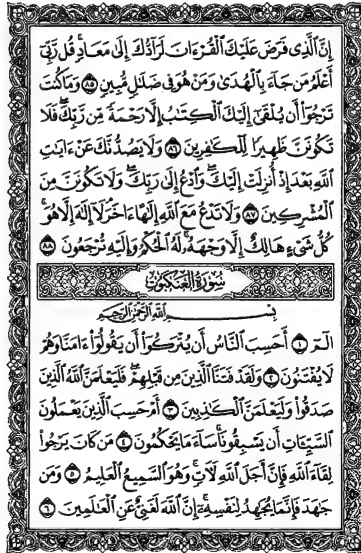 إِنَّ ٱلَّذِى فَرَضَ عَلَيْكَ ٱلْقُرْءَانَ لَرَآدُّكَ إِلَىٰ مَعَادٍ ۚ قُل رَّبِّىٓ
أَعْلَمُ مَن جَآءَ بِٱلْهُدَىٰ وَمَنْ هُوَ فِى ضَلَـٰلٍ مُّبِينٍ ٨٥ وَمَا كُنتَ
تَرْجُوٓا۟ أَن يُلْقَىٰٓ إِلَيْكَ ٱلْكِتَـٰبُ إِلَّا رَحْمَةً مِّن رَّبِّكَ ۖ فَلَا
تَكُونَنَّ ظَهِيرًا لِّلْكَـٰفِرِينَ ٨٦ وَلَا يَصُدُّنَّكَ عَنْ ءَايَـٰتِ
ٱللَّهِ بَعْدَ إِذْ أُنزِلَتْ إِلَيْكَ ۖ وَٱدْعُ إِلَىٰ رَبِّكَ ۖ وَلَا تَكُونَنَّ مِنَ
ٱلْمُشْرِكِينَ ٨٧ وَلَا تَدْعُ مَعَ ٱللَّهِ إِلَـٰهًا ءَاخَرَ ۘ لَآ إِلَـٰهَ إِلَّا هُوَ ۚ
كُلُّ شَىْءٍ هَالِكٌ إِلَّا وَجْهَهُۥ ۚ لَهُ ٱلْحُكْمُ وَإِلَيْهِ تُرْجَعُونَ ٨٨
سُورَةُ الْعَنْكَبُوت
بِسْمِ ٱللَّهِ ٱلرَّحْمَـٰنِ ٱلرَّحِيمِ
الٓمٓ ١ أَحَسِبَ ٱلنَّاسُ أَن يُتْرَكُوٓا۟ أَن يَقُولُوٓا۟ ءَامَنَّا وَهُمْ
لَا يُفْتَنُونَ ٢ وَلَقَدْ فَتَنَّا ٱلَّذِينَ مِن قَبْلِهِمْ ۖ فَلَيَعْلَمَنَّ ٱللَّهُ ٱلَّذِينَ
صَدَقُوا۟ وَلَيَعْلَمَنَّ ٱلْكَـٰذِبِينَ ٣ أَمْ حَسِبَ ٱلَّذِينَ يَعْمَلُونَ
ٱلسَّيِّـَٔاتِ أَن يَسْبِقُونَا ۚ سَآءَ مَا يَحْكُمُونَ ٤ مَن كَانَ يَرْجُوا۟
لِقَآءَ ٱللَّهِ فَإِنَّ أَجَلَ ٱللَّهِ لَـَٔاتٍ ۚ وَهُوَ ٱلسَّمِيعُ ٱلْعَلِيمُ ٥ وَمَن
جَـٰهَدَ فَإِنَّمَا يُجَـٰهِدُ لِنَفْسِهِۦٓ ۚ إِنَّ ٱللَّهَ لَغَنِىٌّ عَنِ ٱلْعَـٰلَمِينَ ٦